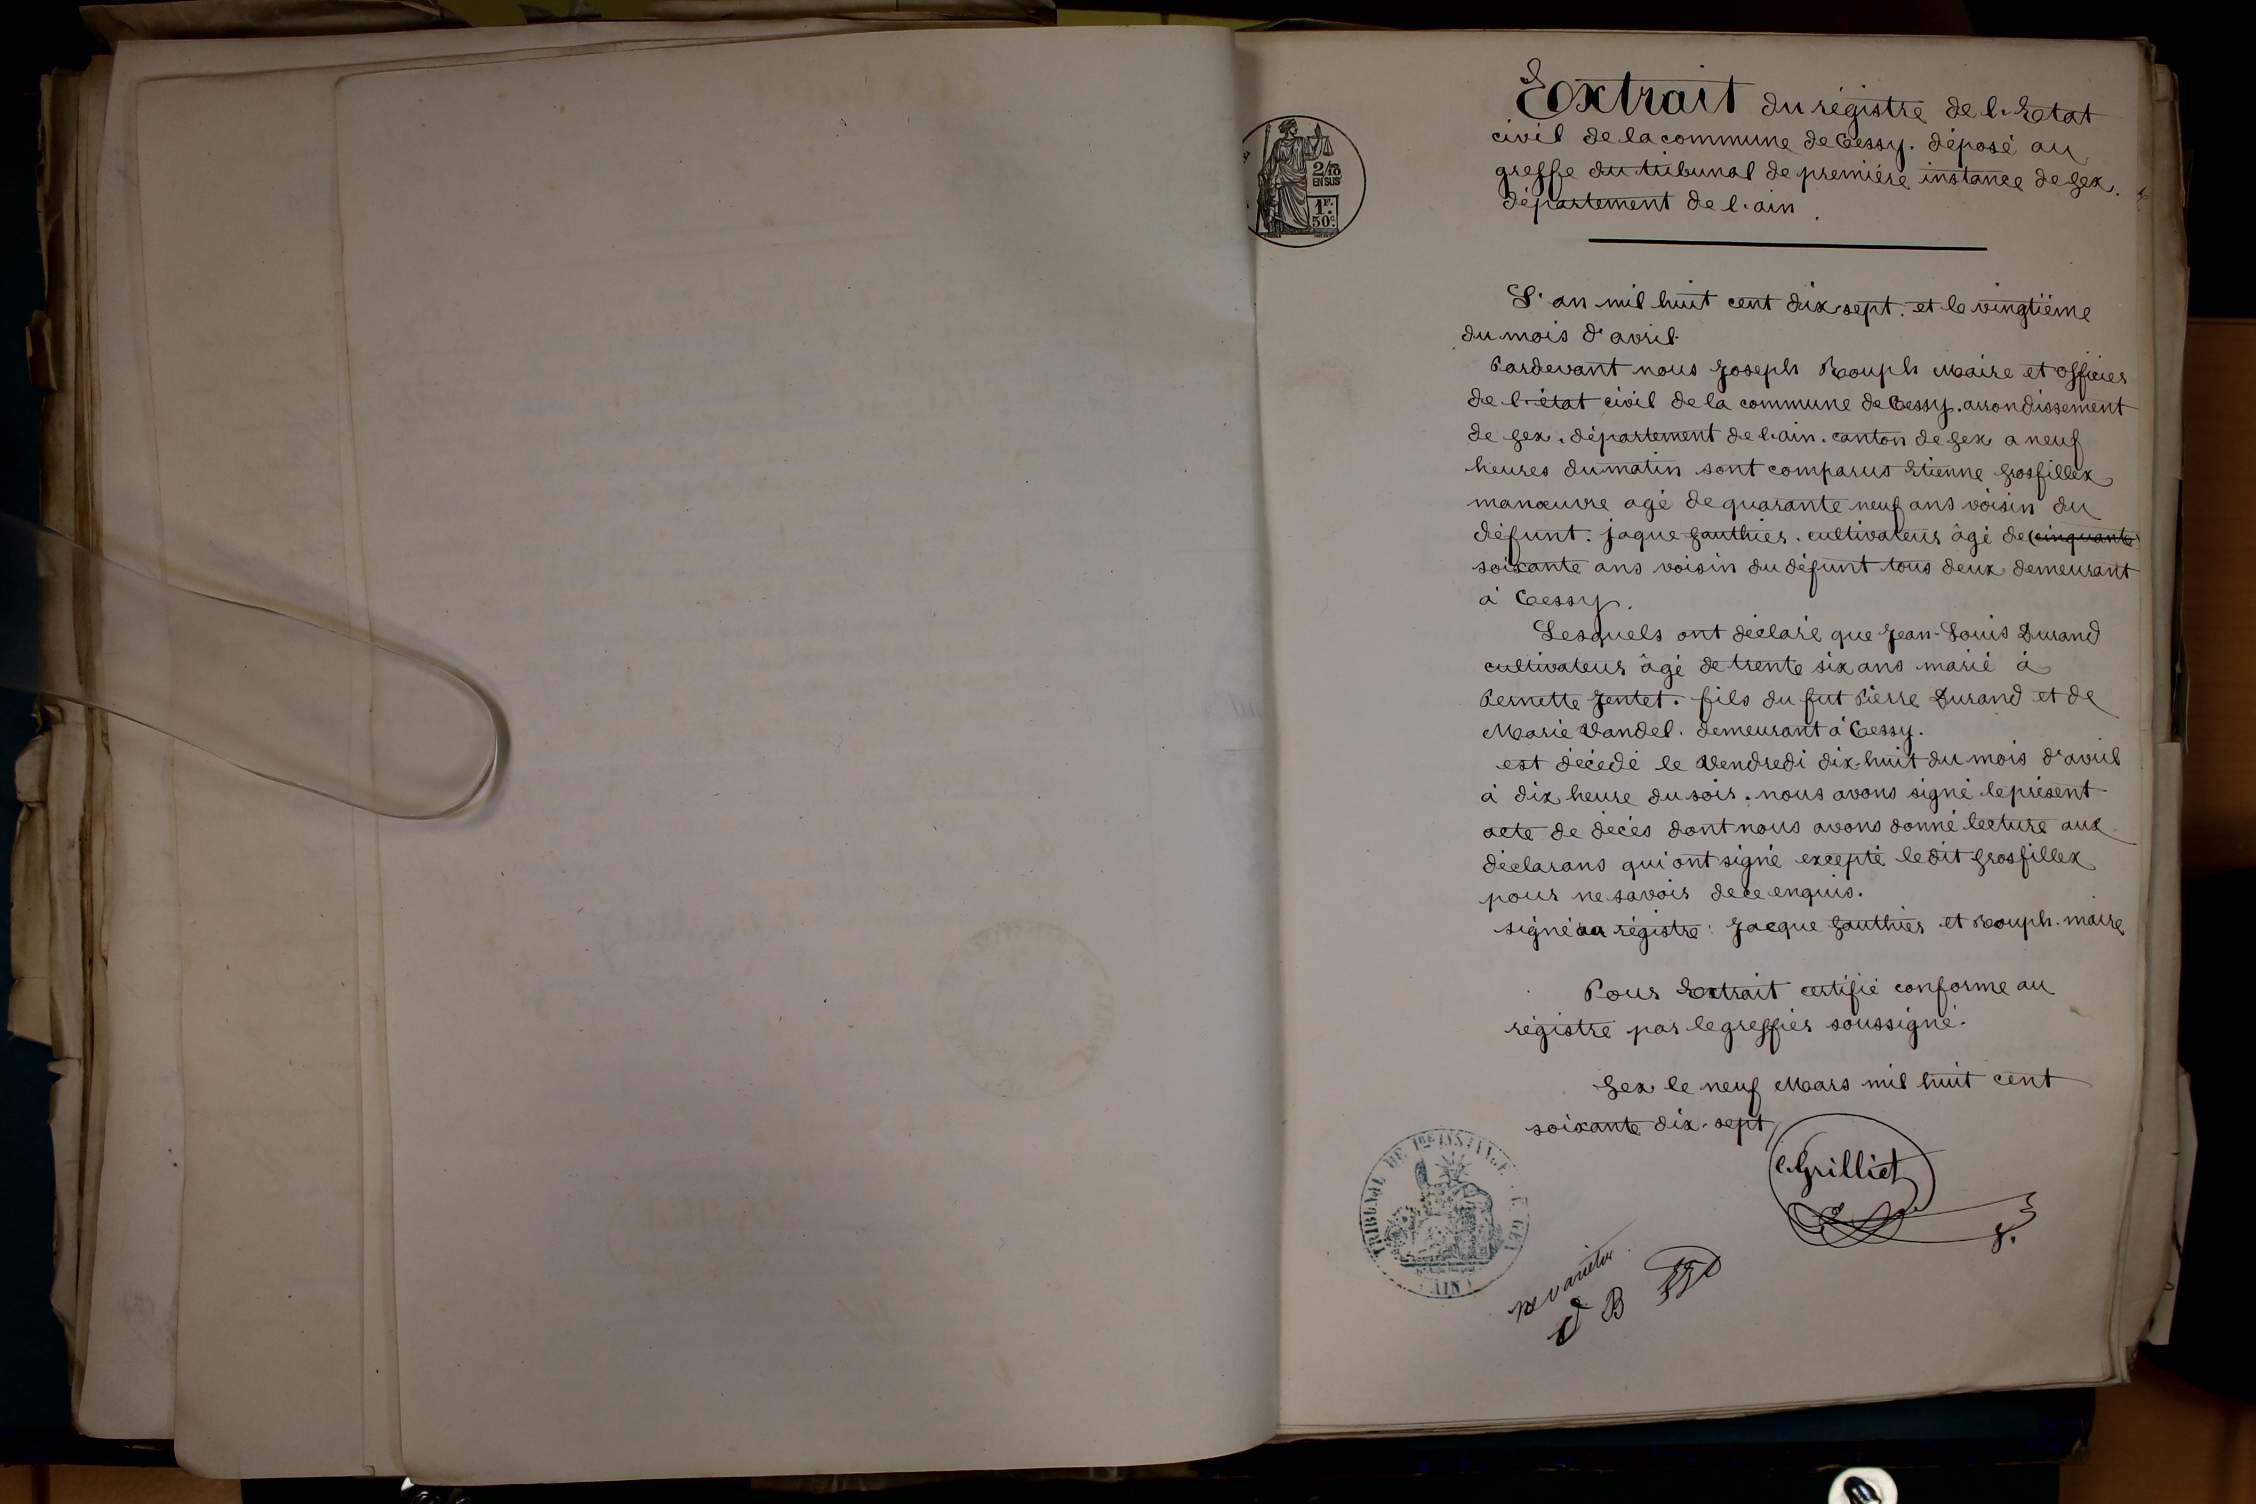 Extrait du régistre de l'Etat
civil de la commune de Cessy. déposé au
greffe du tribunal de première instance de Gex.
département de l'ain.
2/10
EN SUS
1F.
50c.
L'an mil huit cent dix sept. et le vingtième
du mois d'avril.
Pardevant nous Joseph Rouph Maire et officier
de l'état civil de la commune de Cessy. arrondissement
de Gex. département de l'ain. canton de Gex a neuf
heures du matin sont comparus Etienne Grosfillex
manœuvre agé de quarante neuf ans voisin du
défunt. jaque Gauthier. cultivateur âgé de (cinquante)
soixante ans voisin du défunt tous deux demeurant
à Cessy.
Lesquels ont déclaré que Jean-Louis Durand
cultivateur âgé de trente six ans marié à
Pernette Jentet. fils du fut Pierre Durand et de
Marie Vandel. demeurant à Cessy.
est décédé le Vendredi dix-huit du mois d'avril
à dix heure du soir. nous avons signé le présent
acte de décès dont nous avons donné lecture aux
déclarans qui ont signé excepté le dit Grosfillex
pour ne savoir de ce enquis.
signé au régistre: Jacque Gauthier et Rouph. maire
Pour Extrait certifié conforme au
régistre par le greffier soussigné.
Gex le neuf Mars mil huit cent
soixante dix-sept
TRIBUNAL DE 1re INSTANCE DE GEX
AIN
C. Grilliet
ne varietur
B